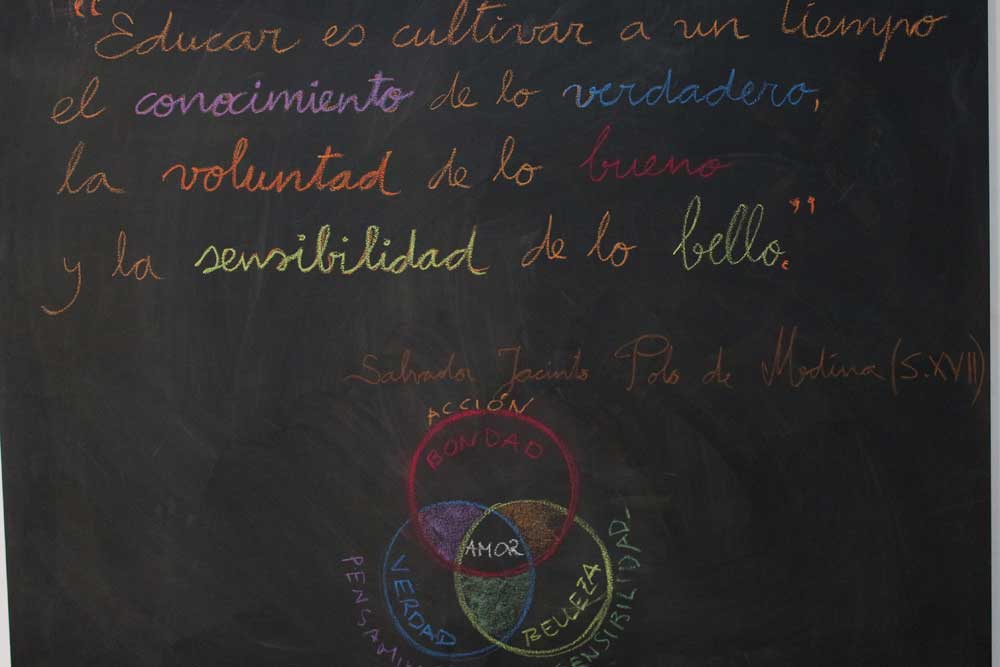 “Educar es cultivar a un tiempo
el conocimiento de lo verdadero,
la voluntad de lo bueno
y la sensibilidad de lo bello.”
Salvador Jacinto Polo de Medina (S.XVII)
ACCIÓN
BONDAD
AMOR
VERDAD
BELLEZA
PENSAMI
SENSIBILIDAD